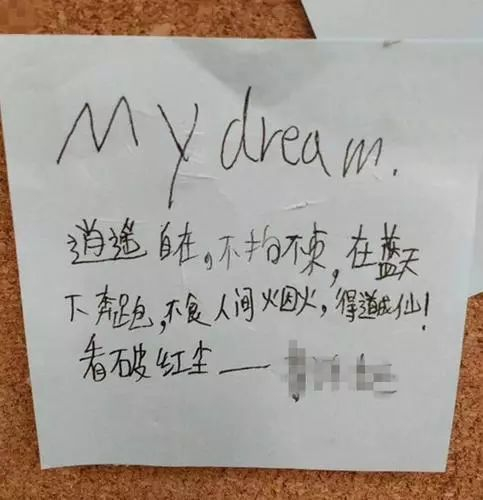 My dream.
逍遥自在,不拘不束,在蓝天
下奔跑,不食人间火因火,得道成仙!
看破红尘——